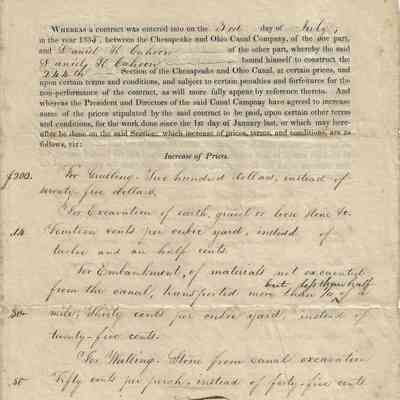 WHEREAS a contract was entered into on the 3rd day of July,
in the year 1835, between the Chesapeake and Ohio Canal Company, of the one part,
and Daniel K Cahoon of the other part, whereby the said
Daniel K Cahoon bound himself to construct the
244th Section of the Chesapeake and Ohio Canal, at certain prices, and
upon certain terms and conditions, and subject to certain penalties and forfeitures for the
non-performance of the contract, as will more fully appear by reference thereto. And
whereas the President and Directors of the said Canal Company have agreed to increase
some of the prices stipulated by the said contract to be paid, upon certain other terms
and conditions, for the work done since the 1st day of January last, or which may here-
after be done on the said Section; which increase of prices, terms, and conditions, are as
follows, viz:
Increase of Prices.
$200. For Grubbing. Two hundred dollars, instead of
seventy-five dollars.
For Excavation of earth, gravel or loose stone &c.
.14 Fourteen cents per cubic yard, instead of
twelve and an half cents.
For Embankment, of materials not excavated
but less than half
from the canal, transported more than 1/4 of a
30 mile, Thirty cents per cubic yard, instead of
twenty-five cents.
For Walling. Stone from canal excavation
50 Fifty cents per perch, instead of forty-five cents